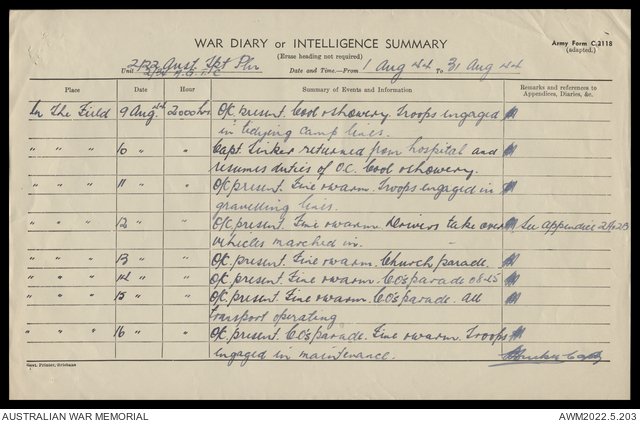 WAR DIARY or INTELLIGENCE SUMMARY
Army Form C.2118
(Erase heading not required)
(adapted.)
Unit Aust Tpt Pln Date and Time.—From 1 Aug To 31 Aug
Place Date Hour Summary of Events and Information Remarks and references to Appendices, Diaries, &c.
In The Field 9 Aug 2000 hrs O.K. present. Cool & showery. Troops engaged
in tidying camp lines.
" " " 10 " " Capt. returned from hospital and
resumes duties of O.C. Cool & showery.
" " " 11 " " O.K. present. Fine & warm. Troops engaged in
gravelling lines.
" " " 12 " " O.K. present. Fine & warm. Drivers take over See Appendice
vehicles marched in.
" " " 13 " " O.K. present. Fine & warm. Church parade.
" " " 14 " " O.K. present. Fine & warm. CO's parade 0815
" " " 15 " " O.K. present. Fine & warm. CO's parade. All
transport operating
" " " 16 " " O.K. present. CO's parade. Fine & warm. Troops
engaged in maintenance.
Govt. Printer, Brisbane
AUSTRALIAN WAR MEMORIAL AWM2022.5.203